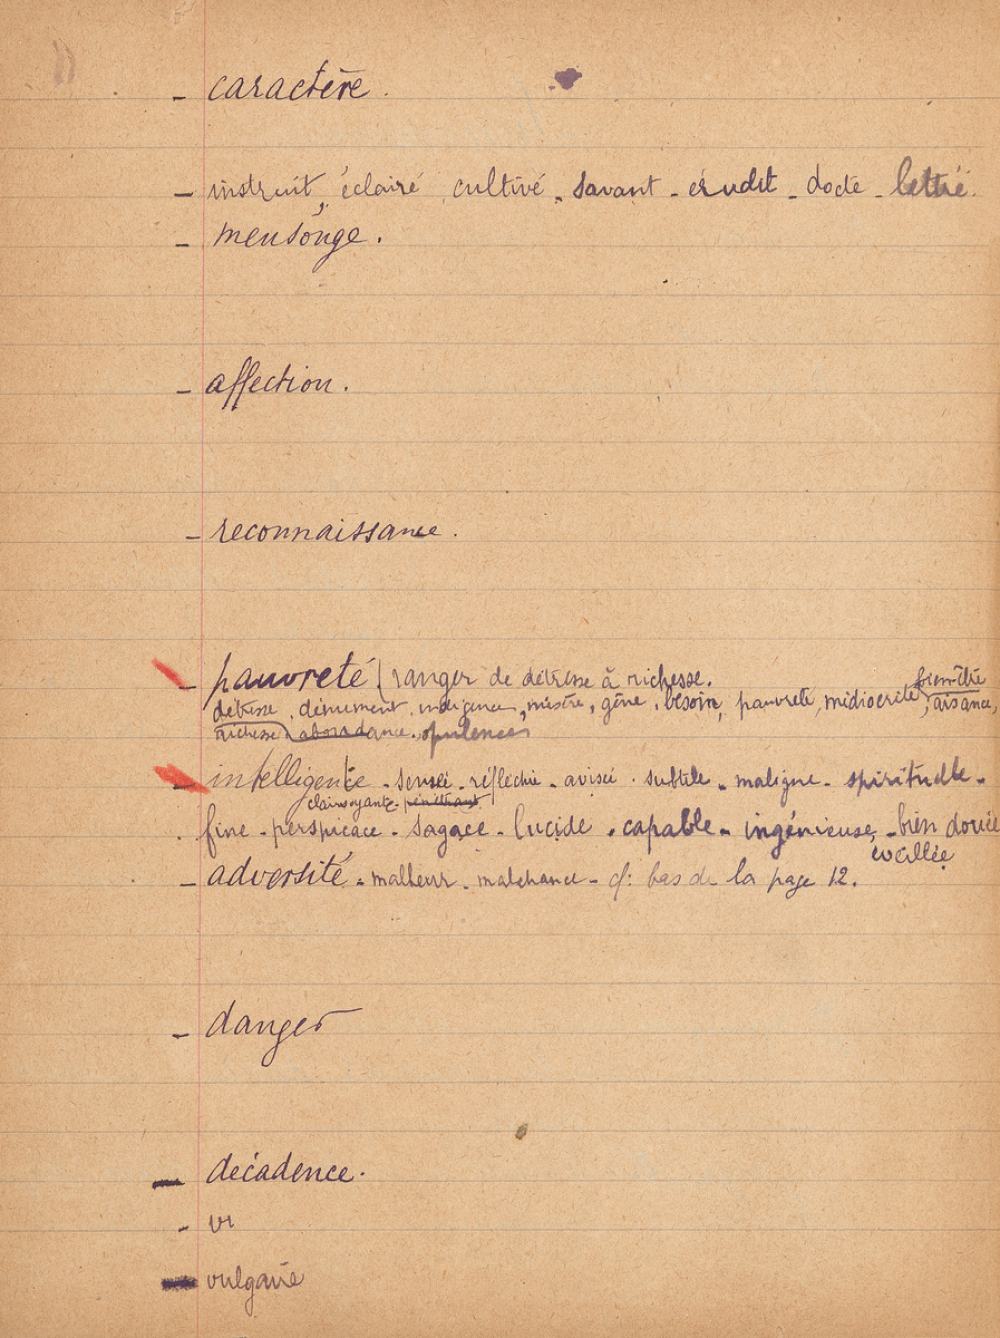 - caractère.
- instruit, éclairé, cultivé - savant - érudit - docte - lettré.
- mensonge.
- affection.
- reconnaissance.
- pauvreté (ranger de détresse à richesse.
bien-être
détresse, dénument, indigence, misère, gêne, besoin, pauvreté, médiocrité, aisance,
richesse, abondance, opulence
- intelligente - sensée - réfléchie - avisée - subtile - maligne - spirituelle -
clairvoyante - pénétrant
fine - perspicace - sagace - lucide - capable - ingénieuse - bien douée
éveillée
- adversité - malheur - malchance - cf: bas de la page 12.
- danger
- décadence.
- vi
- vulgaire